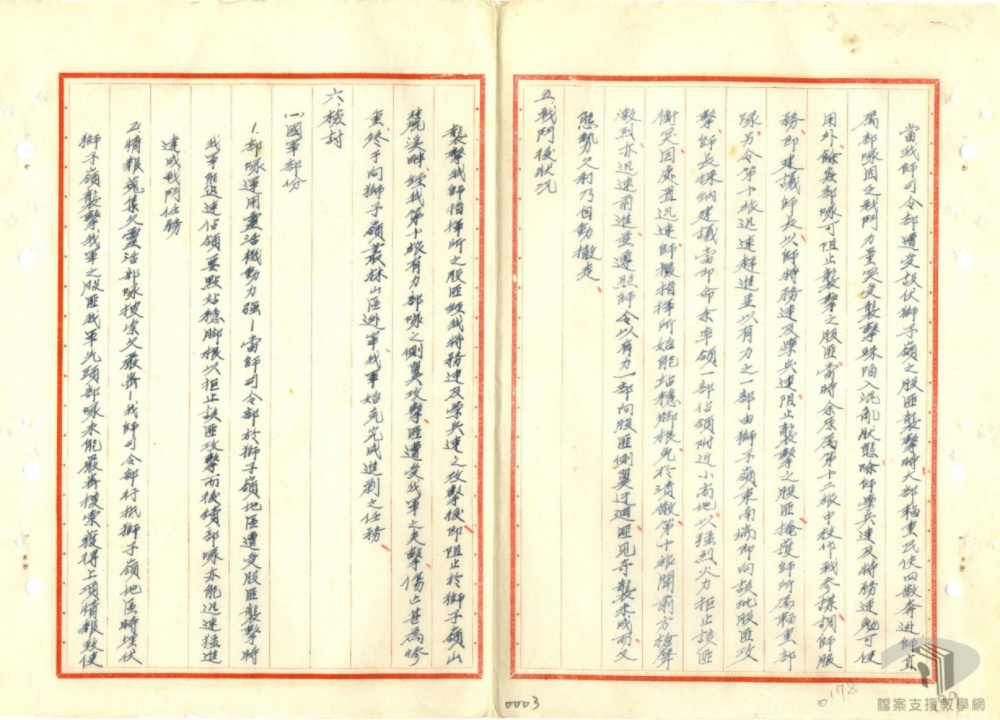 當我師司令部遭受設伏獅子嶺之股匪襲擊時大部輜重民伕四散奔逃師直
屬部隊因之戰鬥力量突受襲擊殊陷入混亂狀態除師學兵連及特務連勉可使
用外餘各部隊可阻止襲擊之股匪當時余度屬第十一旅中校作戰參謀調師服
務即建議師長以師特務連及學兵連阻止襲擊之股匪掩護師所屬輜重部
隊另令第十旅迅速趕進並以有力之一部由獅子嶺東南端即向該批股匪攻
擊師長採納建議當即命余率領一部佔領附近小高地以猛烈火力拒止該匪
衝突因處置迅速師指揮所始能站穩脚根免於潰散第十旅聞前方槍聲
激烈亦迅速前進並遵照師令以有力一部向股匪側翼迂迴匪見奇襲未成而又
態勢欠利乃自動撤走
五、戰鬥後狀况
襲擊我師指揮所之股匪經我特務連及學兵連之攻擊後即阻止於獅子嶺山
麓溪畔經我第十旅有力部隊之側翼攻擊匪遭受我軍之夾擊傷亡甚為慘
重終于向獅子嶺叢林山區逃竄我軍始克完成進剿之任務
六、檢討
㈠國軍部份
1.部隊運用靈活機動力强—當師司令部於獅子嶺地區遭受股匪襲擊時
我軍能迅速佔領要點站穩脚根以拒止該匪攻擊而後續部隊亦能迅速猛進
達成戰鬥任務
2.情報蒐集欠靈活部隊搜索欠嚴密—我師司令部行抵獅子嶺地區時埋伏
獅子嶺襲擊我軍之股匪我軍先頭部隊未能嚴密搜索獲得上項情報致使
0003
0178
檔案支援教學網